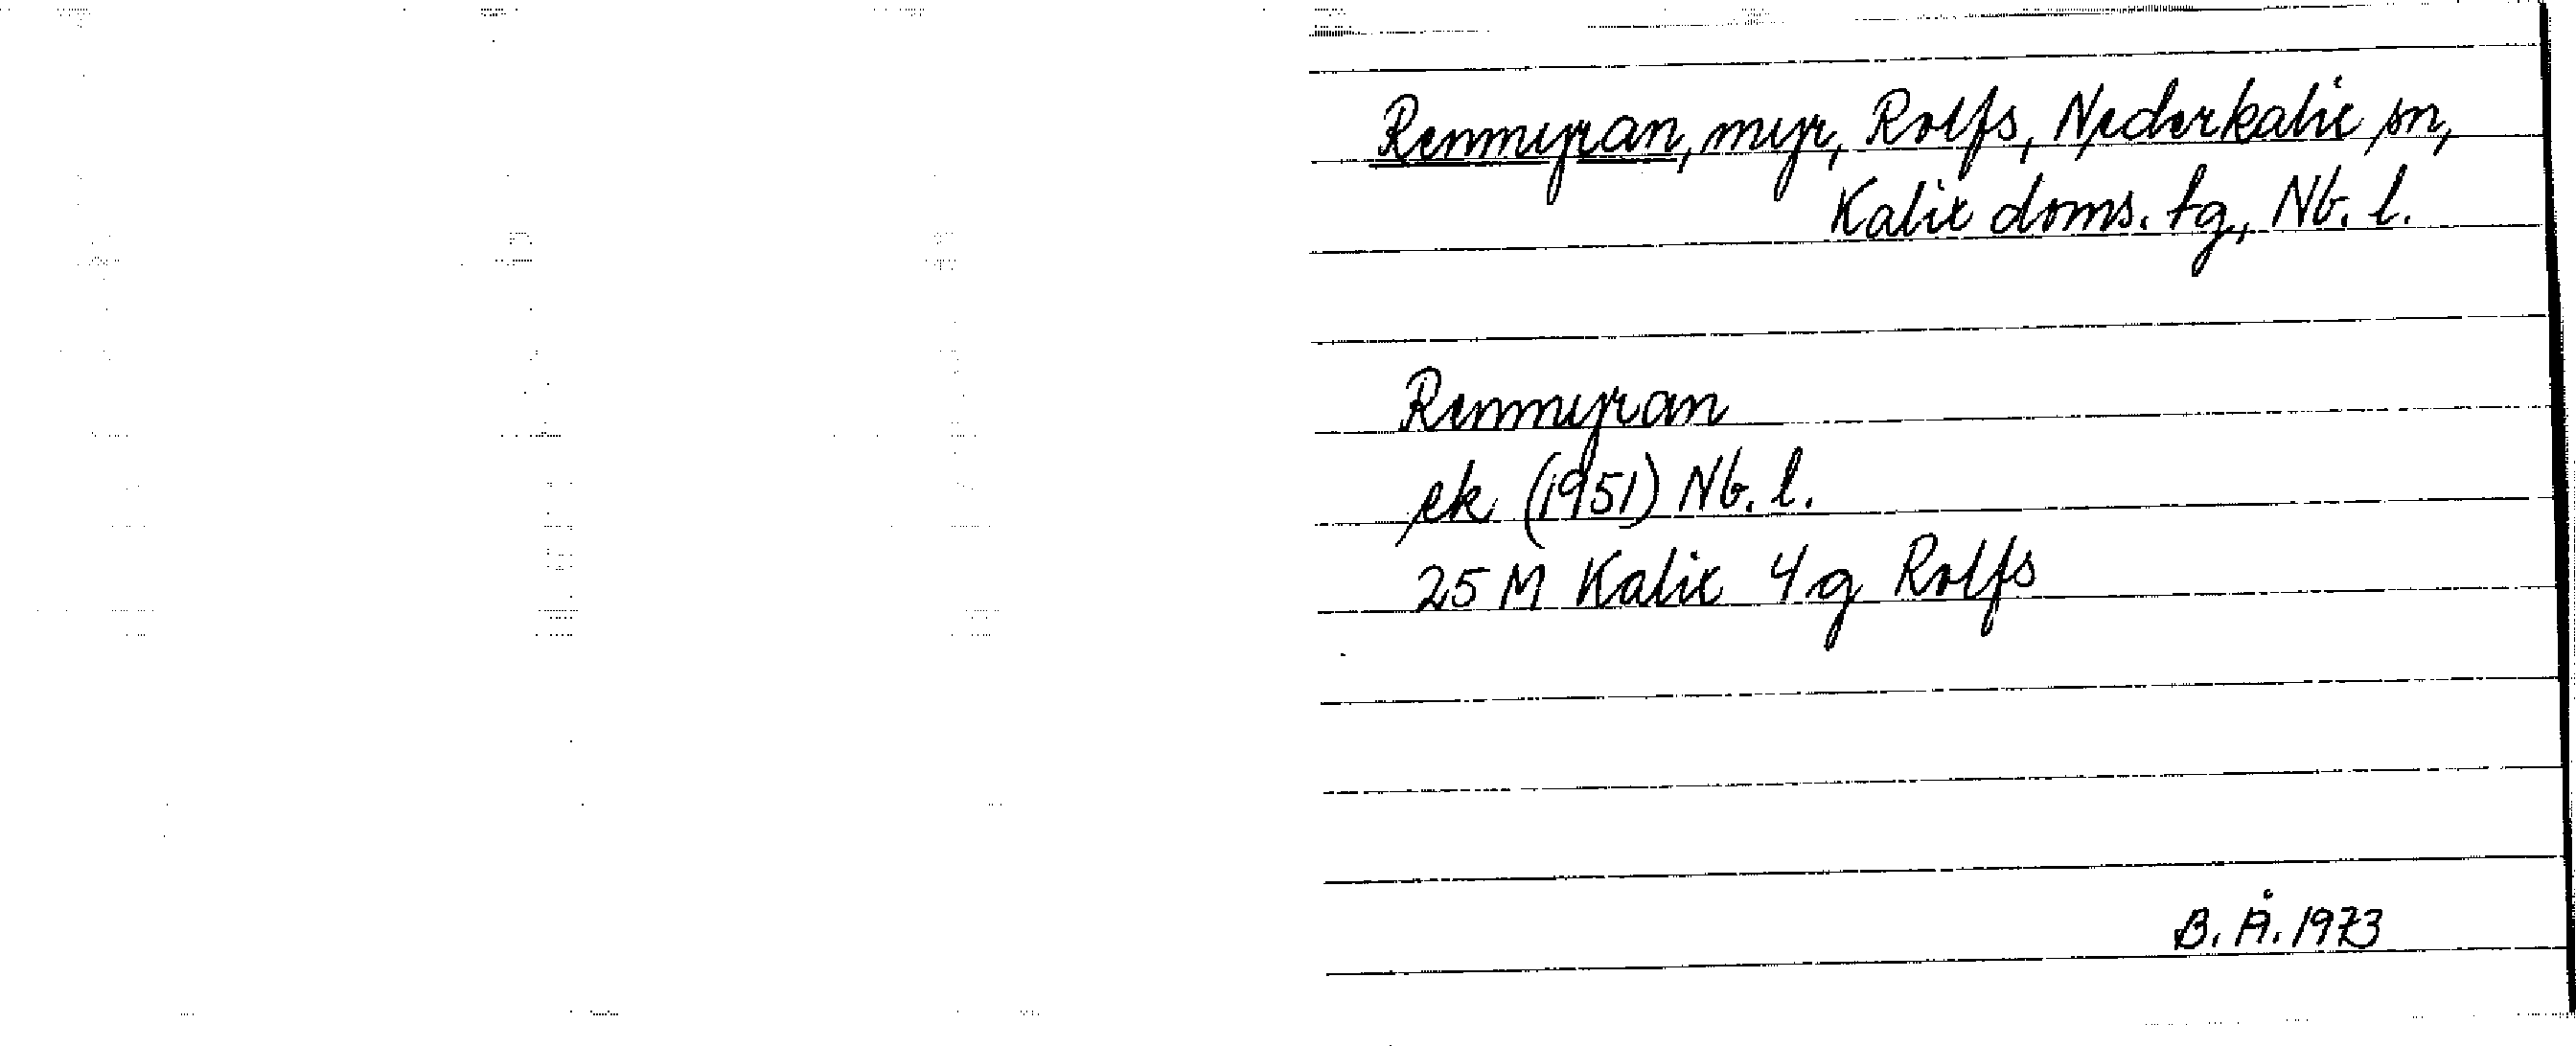 Renmyran, myr, Rolfs, Nederkalix sn,
Kalix doms. tg, Nb. l.
Renmyran
ek (1951) Nb. l.
25 M Kalix 4 g Rolfs
B. Å. 1973